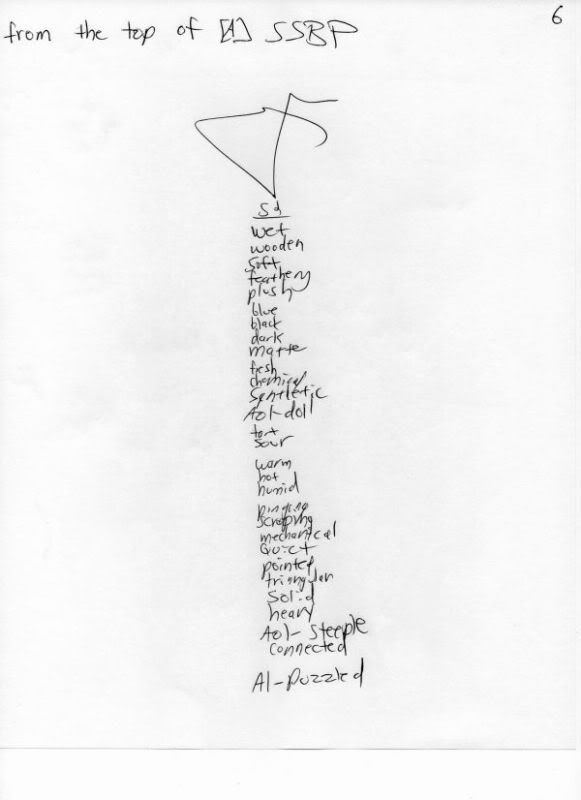 6
from the top of [A] SSBP
Sd
wet
wooden
soft
feathery
plush
blue
black
dark
matte
fresh
chemical
Syntletic
Aol-doll
tart
sour
warm
hot
humid
pinging
scraping
mechanical
Quiet
pointed
triangular
Solid
heavy
Aol- Steeple
connected
AI-Puzzled